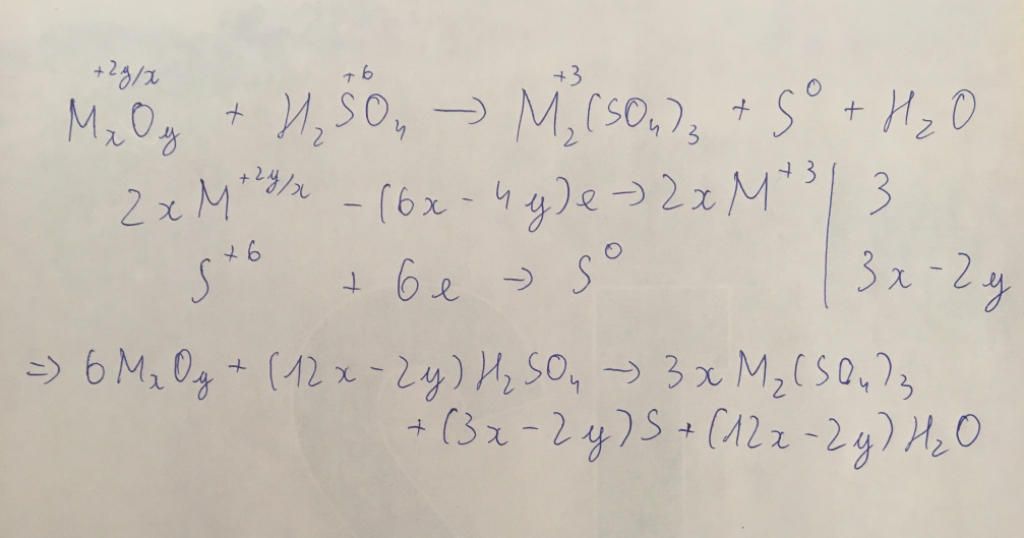 +2y/x +6 +3
MxOy + H2SO4 → M2(SO4)3 + S⁰ + H2O
2xM^+2y/x - (6x - 4y)e → 2xM^+3 | 3
S^+6 + 6e → S⁰ | 3x - 2y
=> 6MxOy + (12x - 2y)H2SO4 → 3xM2(SO4)3
+ (3x - 2y)S + (12x - 2y)H2O